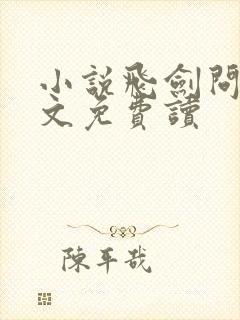 小說飛劍問
文免費讀
陳平哉